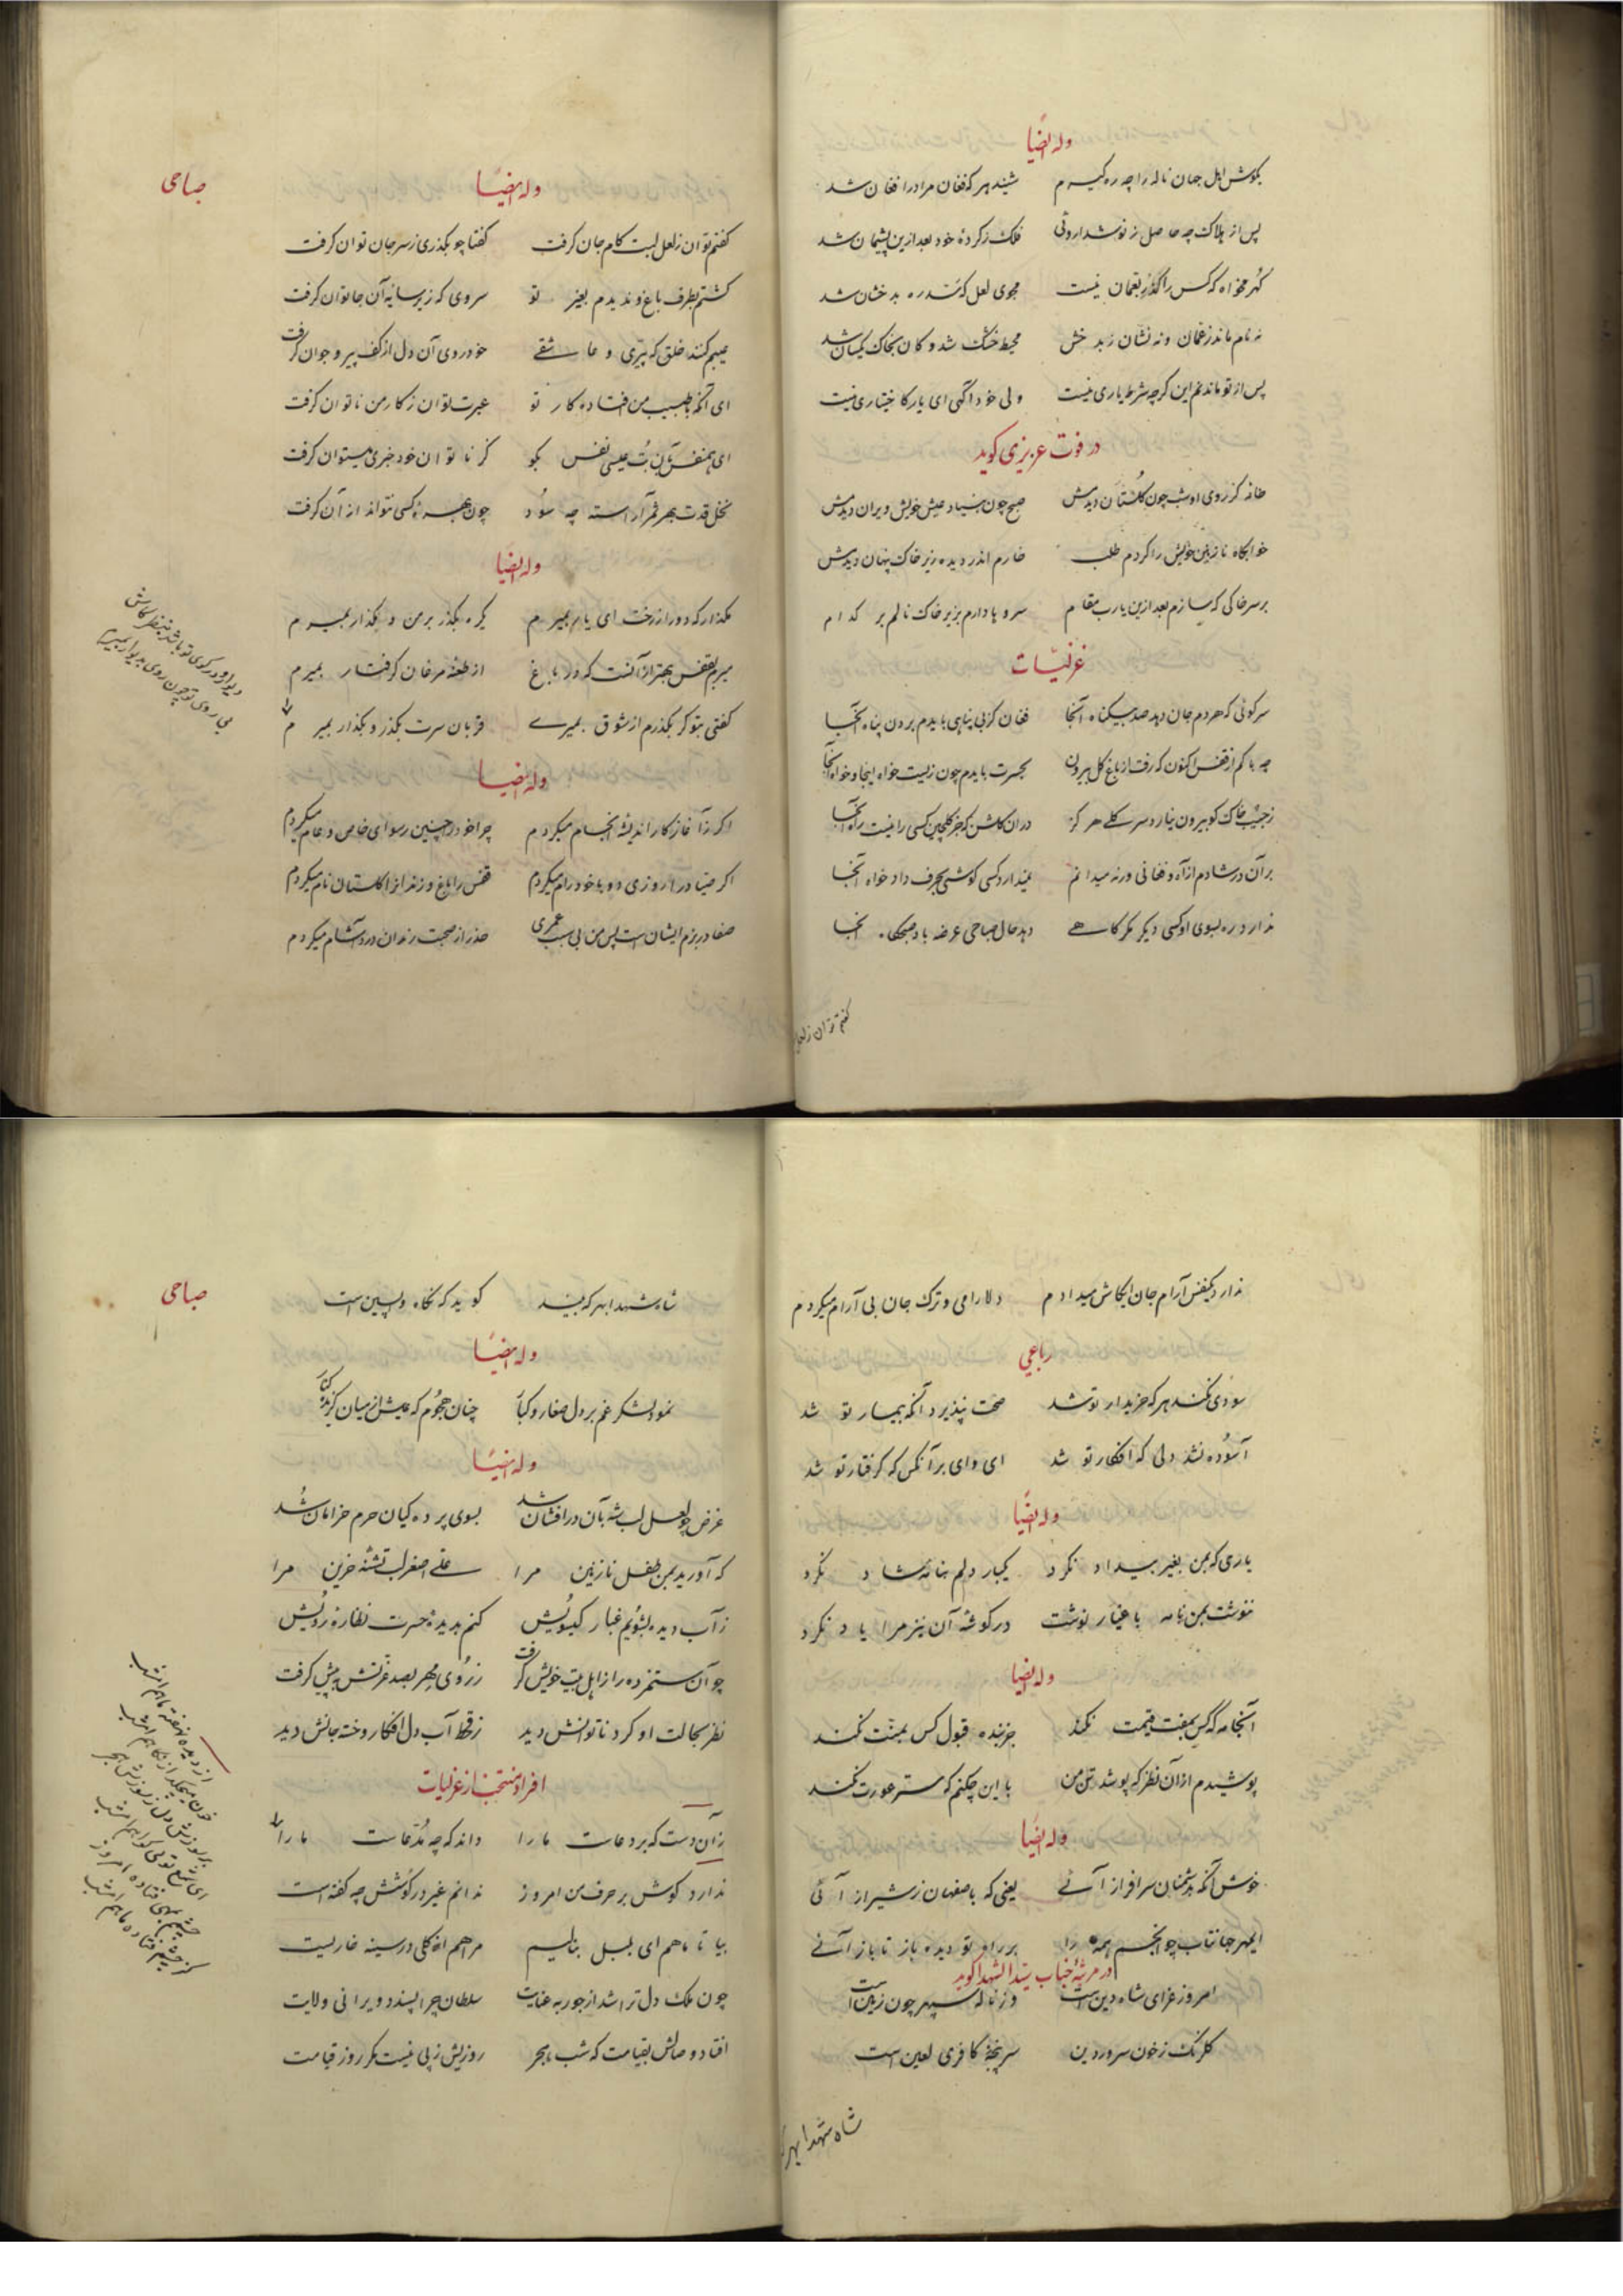 وله ایضًا
بگوش اهل جهان ناله را چه ره گیرم شنید هر که فغان مرا در افغان شد
پس از هلاک چه حاصل ز نوشداروئی فلک ز کردهٔ خود بعد ازین پشیمان شد
گهر مخواه که کس را گذر بعمان نیست مجوی لعل که سد ره بدخشان شد
نه نام ماند ز عمان و نه نشان ز بدخش محیط خشک شد و کان بخاک یکسان شد
پس از تو ماندنم این گرچه شرط یاری نیست ولی خود آگهی ای یار کاختیاری نیست
در فوت عزیزی گوید
خانه کز روی او شب چون گلستان دیدمش صبح چون بنیاد عیش خویش ویران دیدمش
خوابگاه نازنین خویش را کردم طلب خارم اندر دیده زیر خاک پنهان دیدمش
بر سر خاکی که سازم بعد ازین یارب مقام سروها دارم بزیر خاک نالم بر کدام
غزلیّات
سرکوئی که هر دم جان دهد صد بیگناه آنجا فغان کز بی پناهی بایدم بردن پناه آنجا
چه باکم از قفس اکنون که رفت از باغ گل بیرون بحسرت بایدم چون زیست خواه اینجا و خواه آنجا
ز جیب خاک کو بیرون نیارد سر گلی هرگز در آن گلشن که جز گلچین کسی را نیست راه آنجا
بر آن در شادم از آه و فغانی ورنه میدانم نمیدارد کسی گوشی بحرف دادخواه آنجا
ندارد ره بسوی او کسی دیگر مگر گاهی دهد حال صباحی عرضه باد صبحگاه آنجا
گفتم توان ز لعل
صباحی
وله ایضًا
گفتم توان ز لعل لبت کام جان گرفت گفتا چو بگذری ز سر جان توان گرفت
گشتم بطرف باغ و ندیدم بغیر تو سروی که زیر سایهٔ آن جا توان گرفت
عیبم کنند خلق که پیری و عاشقی خود روی آن دل از کف پیر و جوان گرفت
ای آنکه با طبیب من افتاده کار تو عبرت توان ز کار من ناتوان گرفت
ای همنفس بآن بت عیسی نفس بگو کز ناتوان خود خبری میتوان گرفت
نخل قدت بهر ثمر آراسته چه سود چون بهرهٔ کسی نتواند از آن گرفت
وله ایضًا
مگذار که دور از رخت ای یار بمیرم یکره بگذر بر من و بگذار بمیرم
میرم بقفس بهتر از آنست که در باغ از طعنه مرغان گرفتار بمیرم
گفتی بتو گر بگذرم از شوق بمیری قربان سرت بگذر و بگذار بمیرم
دیوار و در کوی تو باشد بنظر کاش
بی روی تو چون روی بدیوار بمیرم
وله ایضًا
اگر ز آغاز کار اندیشهٔ انجام میکردم چرا خود را چنین رسوای خاص و عام میکردم
اگر صیاد را روزی دو با خود رام میکردم قفس را باغ و زندان را گلستان نام میکردم
صفا در بزم ایشانست پس من بی سبب عمری حذر از صحبت رندان درد آشام میکردم
ندارد یکنفس آرام جان ایکاش میدادم دلارامی و ترک جان بی آرام میکردم
رباعی
سودی نکند هر که خریدار تو شد صحت نپذیرد آنکه بیمار تو شد
آسوده نشد دلی که افکار تو شد ای وای بر آنکس که گرفتار تو شد
وله ایضًا
یاری که بمن بغیر بیداد نکرد یکبار دلم بنامه شاد نکرد
ننوشت بمن نامه باغیار نوشت در گوشه آن نیز مرا یاد نکرد
وله ایضًا
آنجامه که کس بمفت قیمت نکند جز بنده قبول کس بمنّت نکند
پوشیدم ازان نظر که پوشد تن من با این چکنم که ستر عورت نکند
وله ایضًا
خوش آنکه بدشمنان سرافراز آئی یعنی که باصفهان ز شیراز آئی
ایمهر جهانتاب چو انجم همه را بر راه تو دیده باز تا باز آئی
در مرثیهٔ جناب سید الشهدا گوید
امروز عزای شاه دین است وز ناله سپهر چون زمین است
گلرنگ ز خون سرور دین سر پنجهٔ کافری لعین است
شاه شهدا بهر
صباحی
شاه شهدا بهر که بیند گوید که نگاه واپسین است
وله ایضًا
نمود لشکر غم بر دل صغار و کبار چنان هجوم که عیش از میان گزید کنار
وله ایضًا
غرض چو لعل لب شه بآن در افشان شد بسوی پرده گیان حرم خرامان شد
که آورید بمن طفل نازنین مرا علی اصغر لب تشنه حزین مرا
ز آب دیده بشویم غبار گیسویش کنم بدیدهٔ حسرت نظارهٔ رویش
چو آن ستمزده را ز اهل بیت خویش گرفت ز روی مهر بصد عزتش به پیش گرفت
نظر بحالت او کرد ناتوانش دید ز قحط آب دل افکار و خسته جانش دید
افراد منتخب از غزلیات
ز آن دست که بر دعاست ما را داند که چه مدعاست ما را
ندارد گوش بر حرف من امروز ندانم غیر در گوشش چه گفته است
بیا تا ما هم ای بلبل بنالیم مرا هم از گلی در سینه خاریست
چون ملک دل تراشد از جور به عنایت سلطان چرا پسندد ویرانی ولایت
افتاد وصالش بقیامت که شب هجر روزیش ز پی نیست مگر روز قیامت
از دیده نهفته ماهم امشب
خون میچکد از نگاهم امشب
بر سوزش دل ز سوزش هجر
ای شمع توئی گواهم امشب
چشمم بمهی فتاده امروز
کز چشم فتاده ماهم امشب